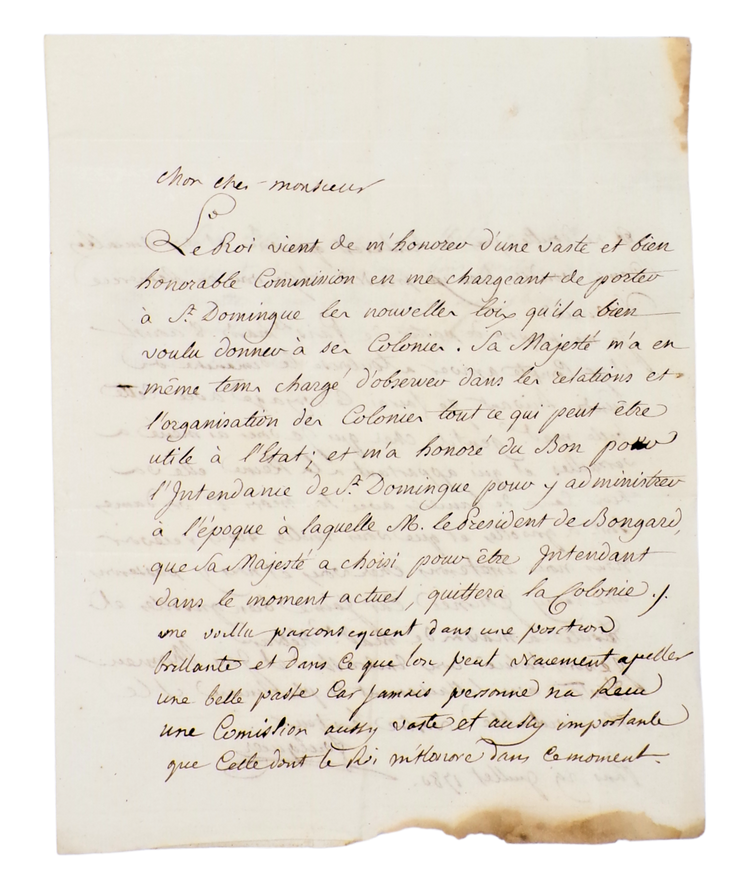 Mon cher monsieur
Le Roi vient de m'honorer d'une vaste et bien
honorable Commission en me chargeant de porter
à St. Domingue les nouvelles loix qu'il a bien
voulu donner à ses Colonies. Sa Majesté m'a en
même tems chargé d'observer dans les relations et
l'organisation des Colonies tout ce qui peut être
utile à l'Etat; et m'a honoré du Bon pour
l'Intendance de St. Domingue pour y administrer
à l'époque à laquelle M. le President de Bongard,
que Sa Majesté a choisi pour être Intendant
dans le moment actuel, quittera la Colonie./.
me voilla parconsequent dans une position
brillante et dans ce que lon peut vraiement apeller
une belle passe Car jamais personne na Receu
une Comission aussy vaste et aussy importante
que Celle dont le Roi m'honore dans ce moment.